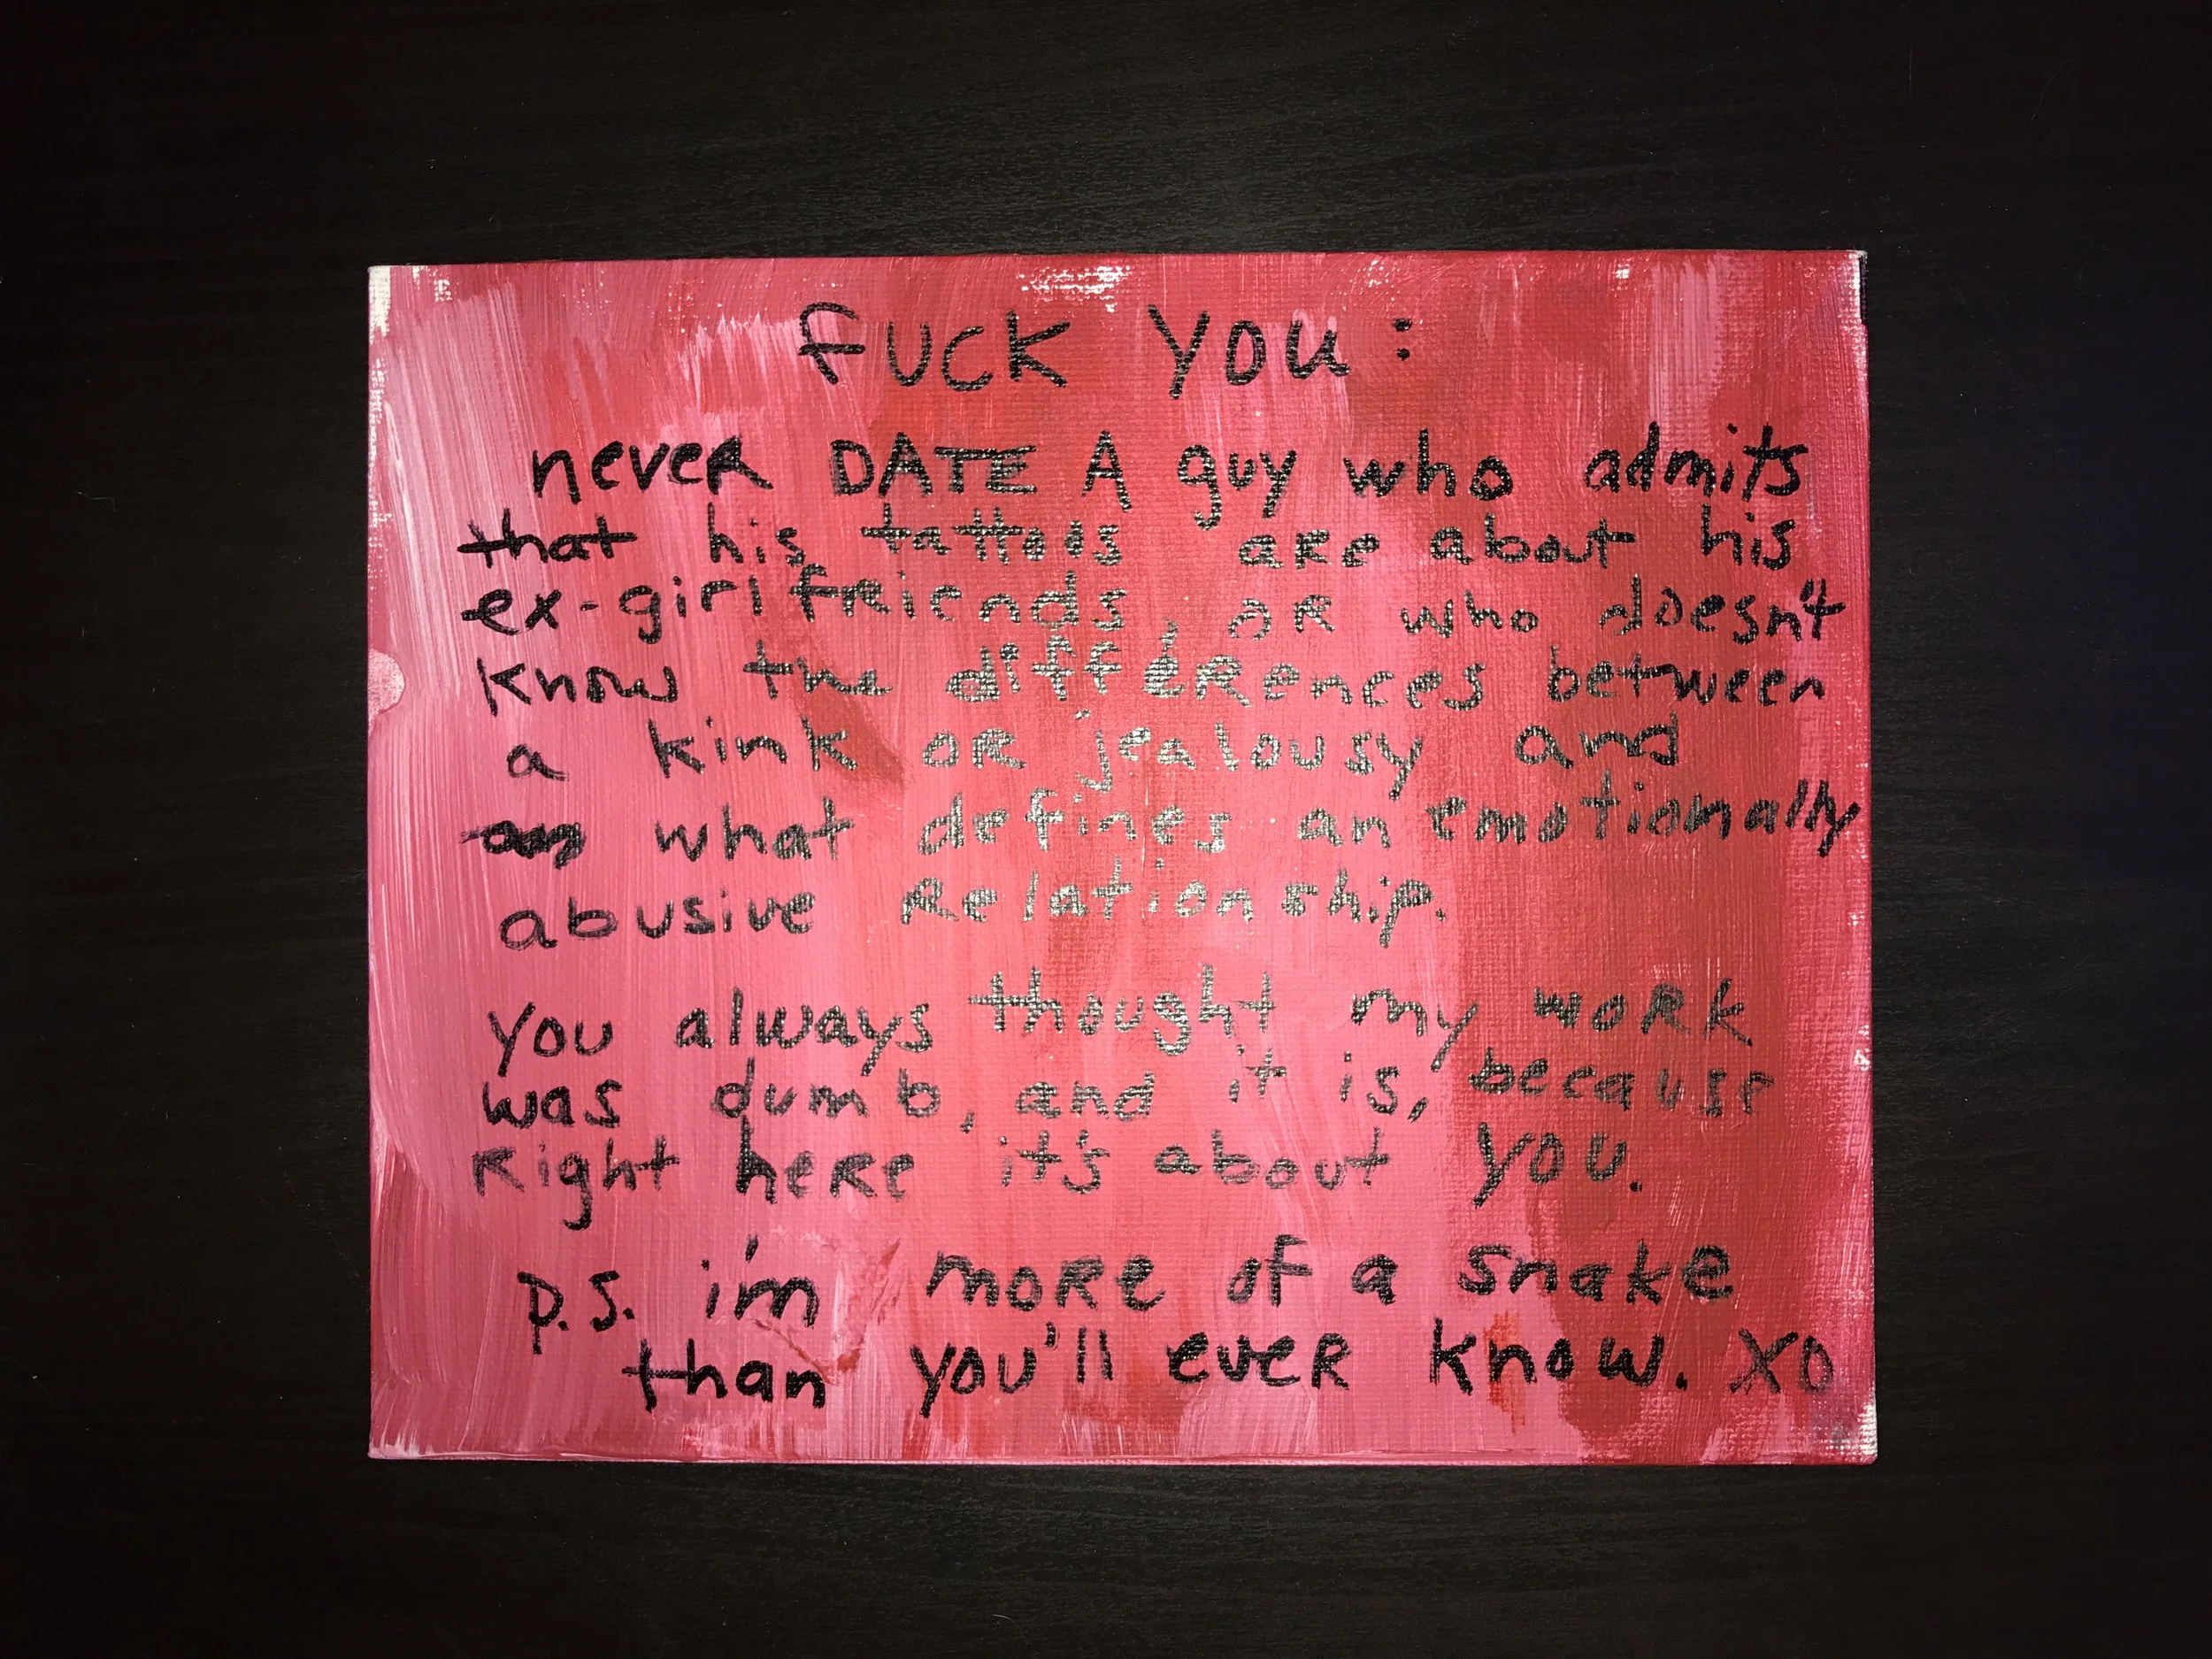 FUCK YOU:
never DATE A guy who admits
that his tattoos are about his
ex-girlfreiends, or who doesn't
know the differences between
a kink or jealousy and
what defines an emotionally
abusive Relationship.
you always thought my work
was dumb, and it is, because
Right here it's about you.
p.s. i'm more of a snake
than you'll ever know. XO